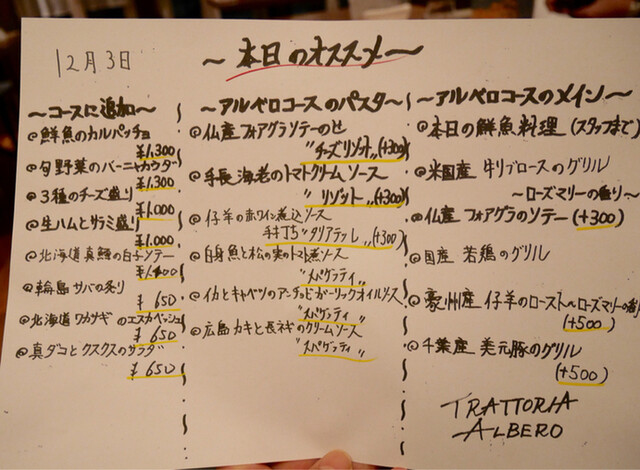 12月3日
～本日のオススメ～
～コースに追加～
◎鮮魚のカルパッチョ
¥1,300
◎旬野菜のバーニャカウダー
¥1,300
◎3種のチーズ盛り
¥1,000
◎生ハムとサラミ盛り
¥1,000
◎北海道 真鱈の白子ソテー
◎輪島サバの炙り
¥650
◎北海道ワカサギのエスカベッシュ
¥650
◎真ダコとクスクスのサラダ
¥650
～アルベロコースのパスタ～
◎仏産フォアグラソテーのせ
"チーズリゾット" (+300)
◎手長海老のトマトクリームソース
"リゾット" (+300)
◎仔羊の赤ワイン煮込ソース
手打ち"タリアテッレ" (+300)
◎白身魚と松の実のトマト煮ソース
"スパゲッティ"
◎イカとキャベツのアンチョビガーリックオイルソース
"スパゲッティ"
◎広島カキと長ネギのクリームソース
"スパゲッティ"
～アルベロコースのメイン～
◎本日の鮮魚料理 (スタッフまで)
◎米国産 牛リブロースのグリル
～ローズマリーの香り～
◎仏産 フォアグラのソテー (+300)
◎国産 若鶏のグリル
◎豪州産 仔羊のロースト～ローズマリーの香り
(+500)
◎千葉産 美元豚のグリル
(+500)
TRATTORIA
ALBERO